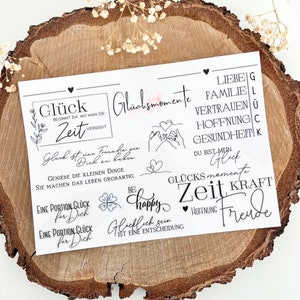 Glück
BEGINNT DA, WO MAN DIE
Zeit
VERGISST
Glücksmomente
LIEBE
FAMILIE
VERTRAUEN
HOFFNUNG
GESUNDHEIT
GLÜCK
Glück ist eine Freundin wie
Dich zu haben
DU BIST MEIN
Glück
GENIEßE DIE KLEINEN DINGE.
SIE MACHEN DAS LEBEN GROßARTIG.
GLÜCKSmomente
Zeit KRAFT
HOFFNUNG Freude
EINE PORTION GLÜCK
für Dich
BE
happy
EINE PORTION GLÜCK
für Dich
Glücklich sein
IST EINE ENTSCHEIDUNG